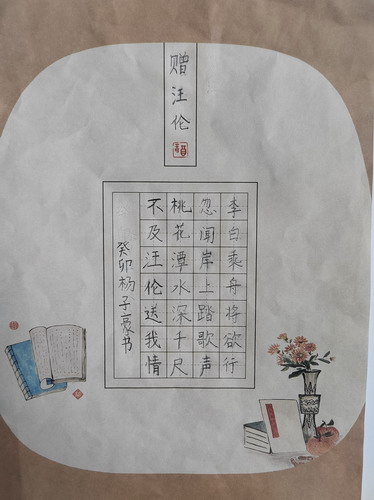 赠汪伦
李白乘舟将欲行
忽闻岸上踏歌声
桃花潭水深千尺
不及汪伦送我情
癸卯杨子豪书